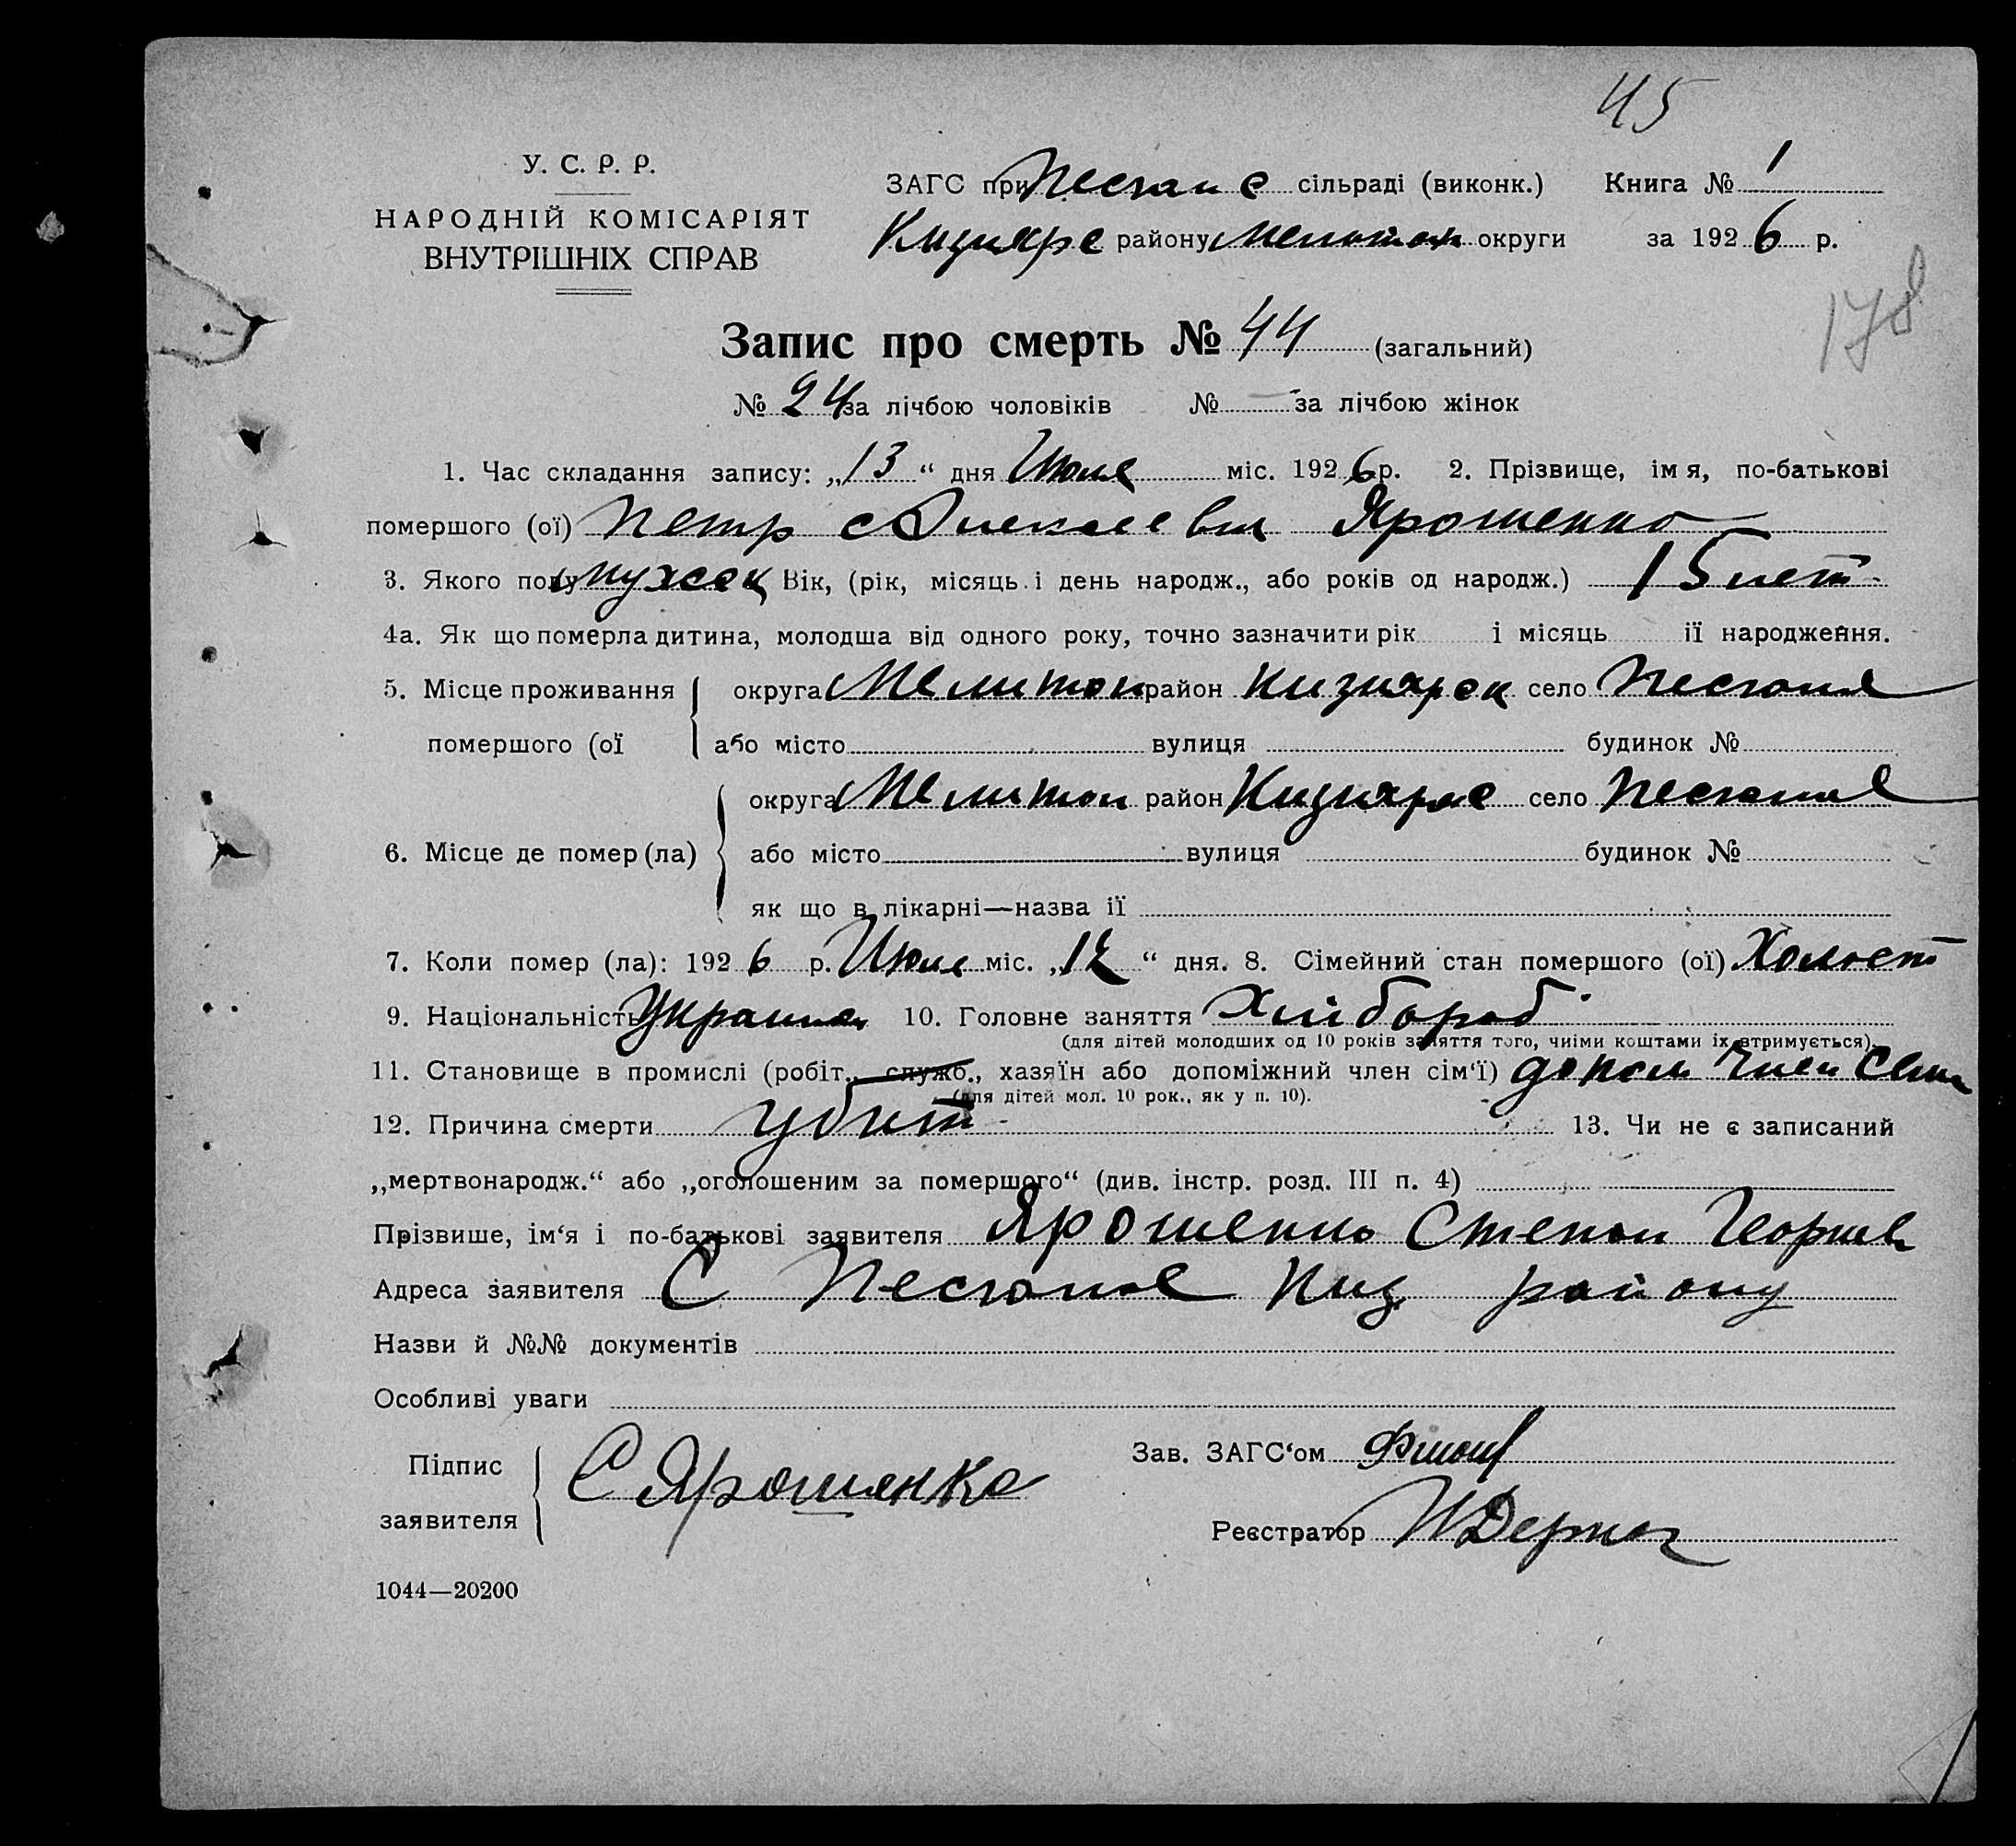 45
У. С. Р. Р.
НАРОДНІЙ КОМІСАРІЯТ
ВНУТРІШНІХ СПРАВ
ЗАГС при сільраді (виконк.) Книга № 1
району округи за 1926 р.
178
Запис про смерть № 44 (загальний)
№ 24 за лічбою чоловіків № — за лічбою жінок
1. Час складання запису: „13“ дня Июля міс. 1926 р. 2. Прізвище, імя, по-батькові
помершого (ої) Петр Ярошенко
3. Якого полу Вік, (рік, місяць і день народж., або років од народж.) 15 лет
4а. Як що померла дитина, молодша від одного року, точно зазначити рік і місяць її народження.
5. Місце проживання округа Мелитоп район Кизиярск село Песчаное
помершого (ої або місто вулиця будинок №
округа Мелитоп район село Песчаное
6. Місце де помер (ла) або місто вулиця будинок №
як що в лікарні—назва її
7. Коли помер (ла): 1926 р. Июля міс. „12“ дня. 8. Сімейний стан помершого (ої) Холост
9. Національність 10. Головне заняття Хлібороб
(для дітей молодших од 10 років заняття того, чиїми коштами їх втримується).
11. Становище в промислі (робіт., служб., хазяїн або допоміжний член сім‘ї) допом член семи
(для дітей мол. 10 рок., як у п. 10).
12. Причина смерти убит 13. Чи не є записаний
„мертвонародж.“ або „оголошеним за помершого“ (див. інстр. розд. III п. 4)
Прізвише, ім‘я і по-батькові заявителя Ярошенко Степан Георгиев
Адреса заявителя С Песчаное Киз району
Назви й №№ документів
Особливі уваги
Підпис С Ярошенко Зав. ЗАГС‘ом
заявителя Реєстратор
1044—20200